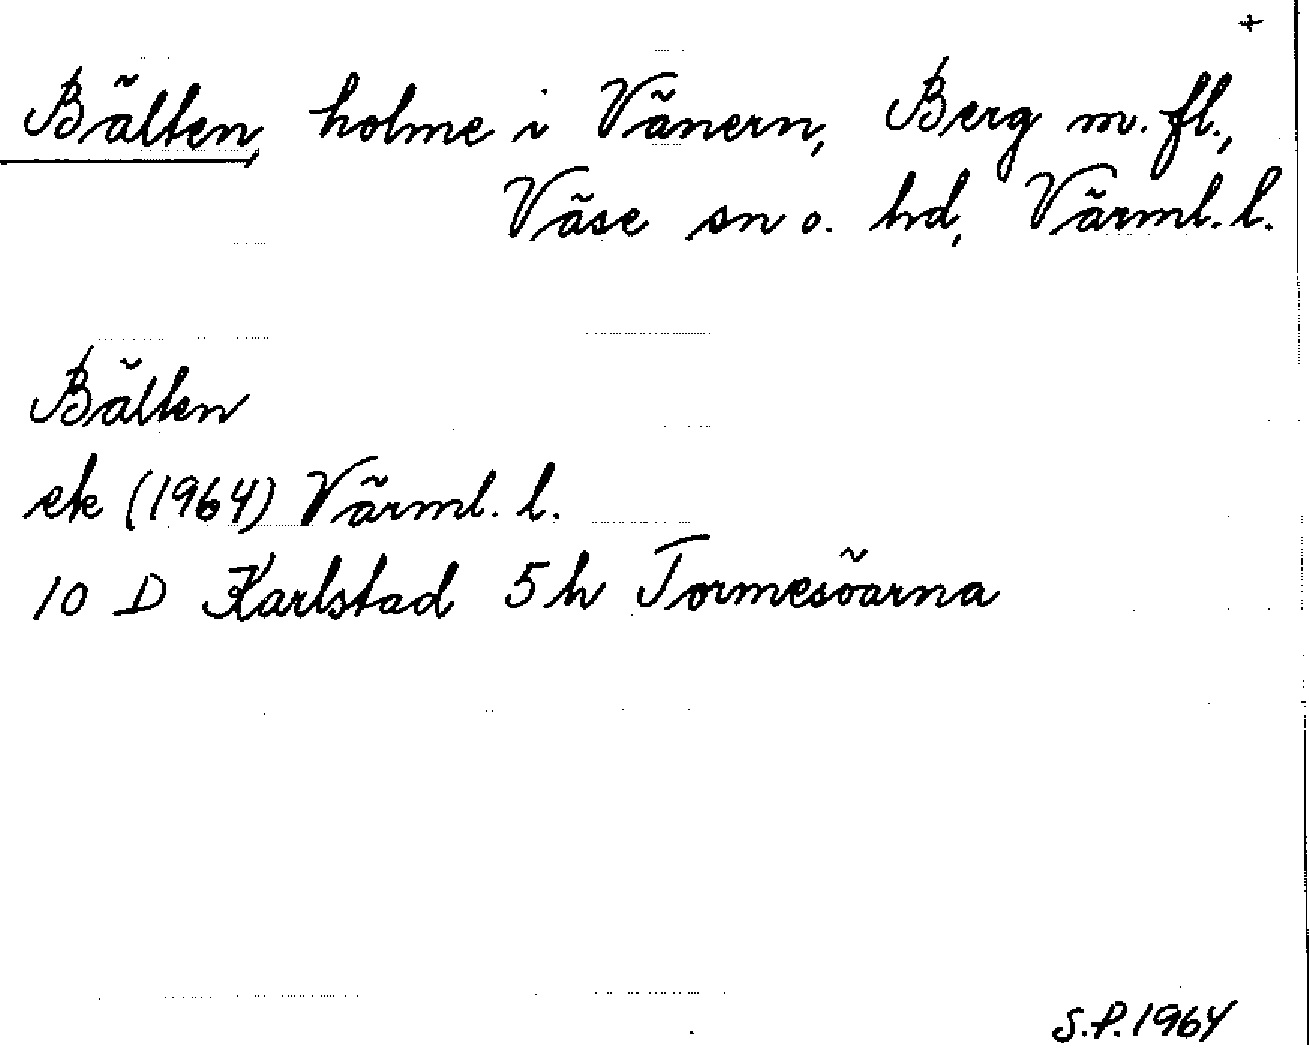 +
Bälten, holme i Vänern, Berg m. fl.,
Väse sn o. hd, Värml. l.
Bälten
ek (1964) Värml. l.
10 D Karlstad 5 h Tormesöarna
S.P. 1964